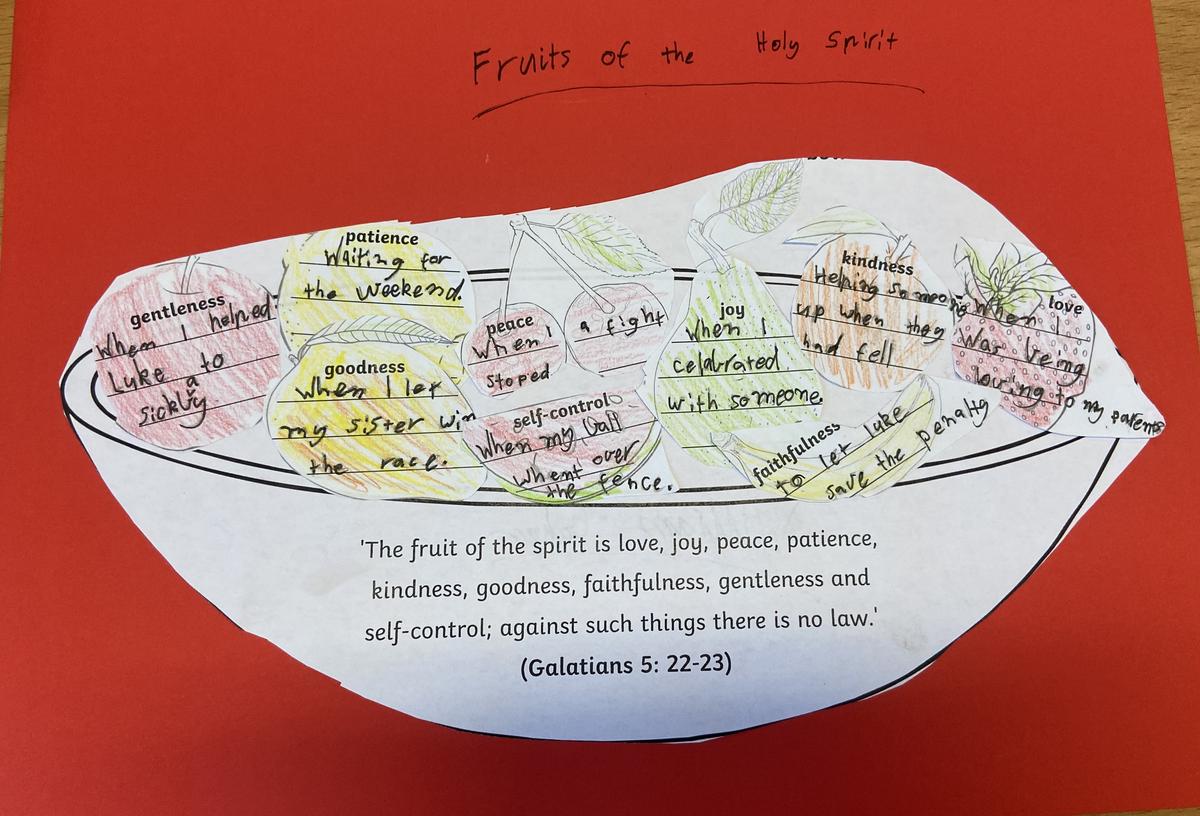 Fruits of the Holy Spirit
gentleness
When I helped
Luke to
a
patience
Waiting for
the weekend.
goodness
When I let
my sister win
the race.
peace
When I
stoped
a fight
self-control
When my ball
whent over
the fence.
joy
When I
celabrated
with someone
kindness
Helping someone
up when they
had fell
faithfulness
to let Luke
save the penalty
love
When I
was being
loving to my parents
'The fruit of the spirit is love, joy, peace, patience,
kindness, goodness, faithfulness, gentleness and
self-control; against such things there is no law.'
(Galatians 5: 22-23)